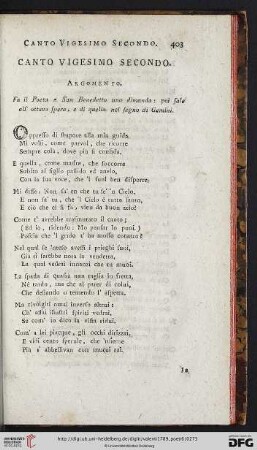 CANTO VIGESIMO SECONDO. 403
CANTO VIGESIMO SECONDO.
ARGOMENTO.
Fa il Poeta a San Benedetto una dimanda: poi sale
all' ottava spera, e di quella nel segno di Gemini.
Oppresso di stupore alla mia guida
Mi volsi, come parvol, che ricorre
Sempre colà, dove più si confida.
E quella, come madre, che soccorre
Subito al figlio pallido ed anelo,
Con la sua voce, che 'l suol ben disporre,
Mi disse: Non sa' tu che tu se' 'n Cielo,
E non sa' tu, che 'l Cielo è tutto santo,
E ciò che ci si fa, vien da buon zelo?
Come t' avrebbe trasmutato il canto;
(Ed io, ridendo: Mo pensar lo puoi)
Poscia che 'l grido t' ha mosso cotanto?
Nel qual se 'nteso avessi i prieghi suoi,
Già ti sarebbe nota la vendetta,
La qual vedrai innanzi che tu muoi.
La spada di quassù non taglia in fretta,
Nè tardo, ma che al parer di colui,
Che desiando o temendo l' aspetta.
Ma rivolgiti omai inverso altrui:
Ch' assai illustri spiriti vedrai,
Se com' io dico la vista ridui.
Com' a lei piacque, gli occhi dirizzai,
E vidi cento sperule, che 'nsieme
Più s' abbellivan con mutui rai.
http://digi.ub.uni-heidelberg.de/diglit/
© Universitätsbibliothek Heidelberg
gefördert durch die
DFG